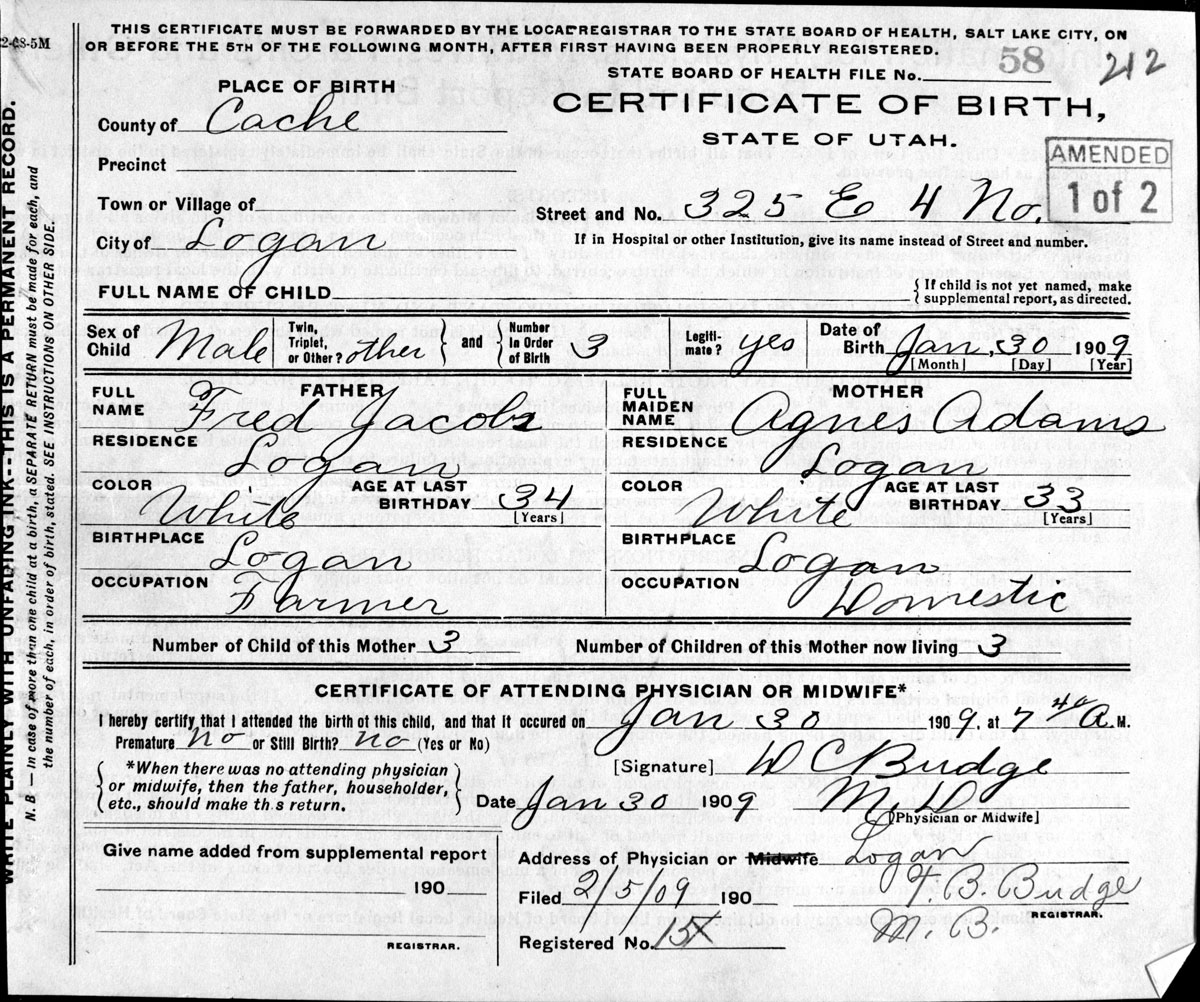 2-08-5M
THIS CERTIFICATE MUST BE FORWARDED BY THE LOCAL REGISTRAR TO THE STATE BOARD OF HEALTH, SALT LAKE CITY, ON
OR BEFORE THE 5TH OF THE FOLLOWING MONTH, AFTER FIRST HAVING BEEN PROPERLY REGISTERED.
STATE BOARD OF HEALTH FILE No. 58 212
CERTIFICATE OF BIRTH,
STATE OF UTAH.
AMENDED
1 of 2
PLACE OF BIRTH
County of Cache
Precinct
Town or Village of
City of Logan
Street and No. 325 E 4 No.
If in Hospital or other Institution, give its name instead of Street and number.
FULL NAME OF CHILD
{ If child is not yet named, make
supplemental report, as directed.
Sex of Child Male
Twin, Triplet, or Other? other } and { Number In Order of Birth 3
Legiti-mate? yes
Date of Birth Jan, 30 1909
[Month] [Day] [Year]
FATHER
FULL NAME Fred Jacobs
RESIDENCE Logan
COLOR White
AGE AT LAST BIRTHDAY 34 [Years]
BIRTHPLACE Logan
OCCUPATION Farmer
MOTHER
FULL MAIDEN NAME Agnes Adams
RESIDENCE Logan
COLOR White
AGE AT LAST BIRTHDAY 33 [Years]
BIRTHPLACE Logan
OCCUPATION Domestic
Number of Child of this Mother 3
Number of Children of this Mother now living 3
CERTIFICATE OF ATTENDING PHYSICIAN OR MIDWIFE*
I hereby certify that I attended the birth ot this child, and that it occured on Jan 30 1909, at 7 40 A. M.
Premature No or Still Birth? No (Yes or No)
{ *When there was no attending physician
or midwife, then the father, householder,
etc., should make th s return. }
[Signature] D C Budge
Date Jan 30 1909 M. D
[Physician or Midwife]
Give name added from supplemental report
190
REGISTRAR.
Address of Physician or Midwife Logan
Filed 2/5/09 190 F. B. Budge
REGISTRAR.
M. B.
Registered No.
WRITE PLAINLY WITH UNFADING INK--THIS IS A PERMANENT RECORD.
N. B.—In case of more than one child at a birth, a SEPARATE RETURN must be made for each, and
the number of each, in order of birth, stated. SEE INSTRUCTIONS ON OTHER SIDE.